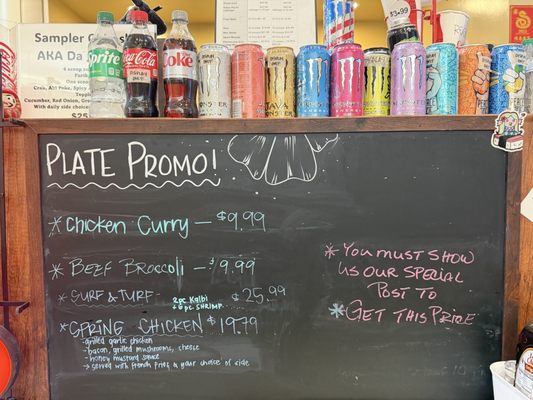 Sampler C
AKA Da
Crab, Ahi Poke, Spicy
Cucumber, Red Onion, Gre
With daily side choice
$25
Sprite
Coca-Cola
COKE
$3.99
MONSTER
PLATE PROMO!
*Chicken Curry - $9.99
*BEEF Broccoli - $9.99
*SURF & TURF 2pc Kalbi
+6 pc. SHRIMP $25.99
*SPRING CHICKEN $19.79
- grilled garlic chicken
- bacon, grilled mushrooms, cheese
- honey mustard sauce
→ served with french fries & your choice of side
*YOU MUST SHOW
US OUR SPECIAL
POST TO
*GET THIS PRICE